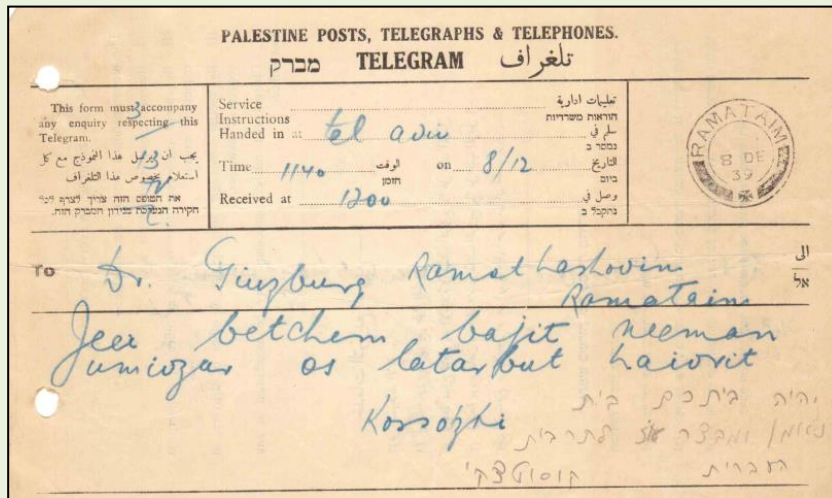 PALESTINE POSTS, TELEGRAPHS & TELEPHONES.
מברק TELEGRAM تلغراف
This form must accompany
any enquiry respecting this
Telegram.
يجب ان يرسل هذا النموذج مع كل
استعلام بخصوص هذا التلغراف
את הטופס הזה צריך לצרף לכל
חקירה הנעשית בנידון המברק הזה.
Service تعليمات ادارية
Instructions הוראות משרדיות
Handed in at tel aviv سلم في
נמסר ב
Time 1140 الوقت on 8/12 التاريخ
הזמן ביום
Received at 1200 وصل في
נתקבל ב
RAMATAIM
8 DE
39
To Dr. Ginzburg Ramat hashovim الى
Ramataim אל
Jeei betchem bajit neeman
umivzar os latarbut haivrit
יהיה ביתכם בית
נאמן ומבצר עוז לתרבות
העברית קוסוטצקי